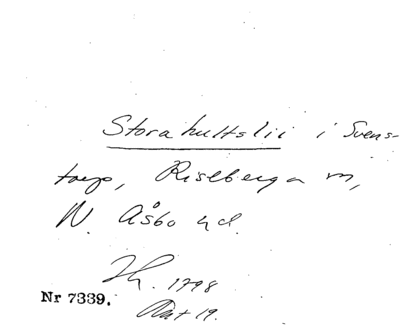 Storahultslii i Svens-
torp, Riseberga sn,
N. Åsbo hd.
1798
Nr 7339.
Akt 19.